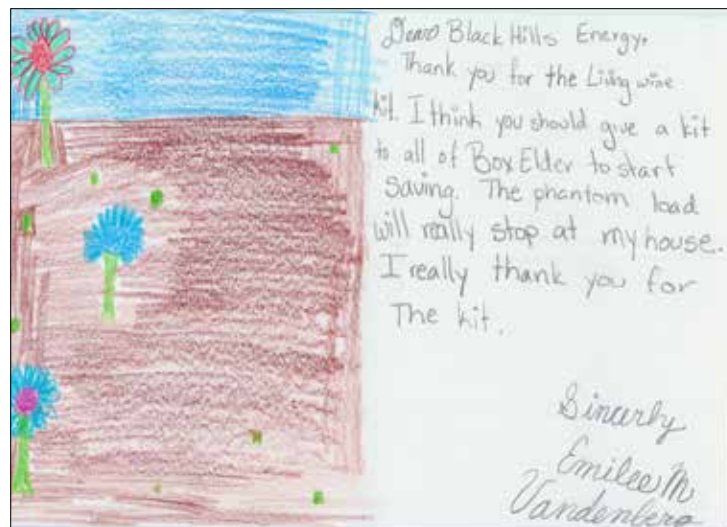 Dear Black Hills Energy,
Thank you for the Living wise
kit. I think you should give a kit
to all of Box Elder to start
saving. The phantom load
will really stop at my house.
I really thank you for
The kit.
Sincerly
Emilee M
Vandenberg